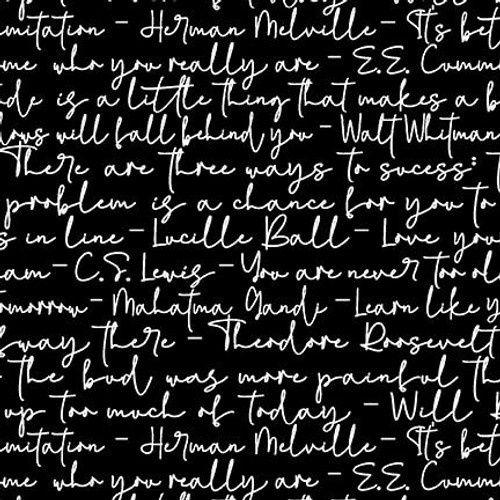 imitation - Herman Melville - It's bet
ome who you really are - E.E. Cumm
de is a little thing that makes a b
dows will fall behind you - Walt Whitman
There are three ways to sucess: T
problem is a chance for you to
s in line - Lucille Ball - Love you
am - C.S. Lewis - You are never too ol
tomorrow - Mahatma Gandi - Learn like y
fway there - Theodore Roosevelt
- The bud was more painful th
up too much of today - Will R
imitation - Herman Melville - It's bet
ome who you really are - E.E. Cumm